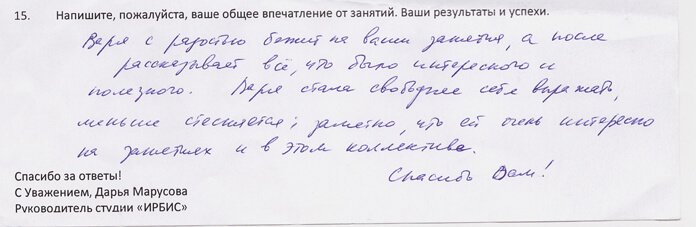 15. Напишите, пожалуйста, ваше общее впечатление от занятий. Ваши результаты и успехи.
Варя с радостью бежит на ваши занятия, а после
рассказывает всё, что было интересного и
полезного. Варя стала свободнее себя выражать,
меньше стесняется; заметно, что ей очень интересно
на занятиях и в этом коллективе.
Спасибо Вам!
Спасибо за ответы!
С Уважением, Дарья Марусова
Руководитель студии «ИРБИС»